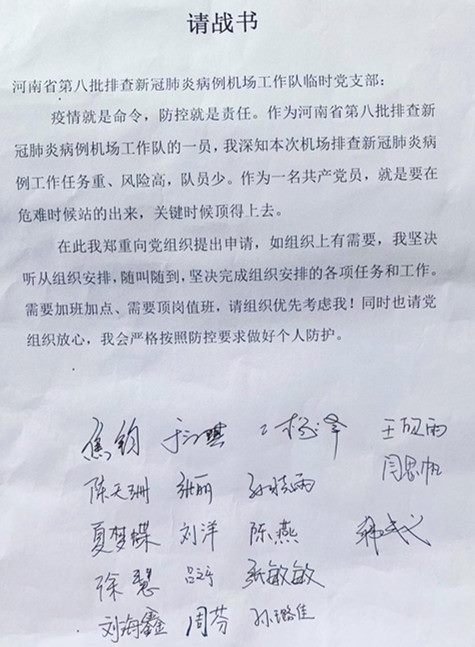 请战书
河南省第八批排查新冠肺炎病例机场工作队临时党支部：
疫情就是命令，防控就是责任。作为河南省第八批排查新
冠肺炎病例机场工作队的一员，我深知本次机场排查新冠肺炎病
例工作任务重、风险高，队员少。作为一名共产党员，就是要在
危难时候站的出来，关键时候顶得上去。
在此我郑重向党组织提出申请，如组织上有需要，我坚决
听从组织安排，随叫随到，坚决完成组织安排的各项任务和工作。
需要加班加点、需要顶岗值班，请组织优先考虑我！同时也请党
组织放心，我会严格按照防控要求做好个人防护。
焦钧
闫思帆
陈天珊 张丽 孙晓雨
夏梦蝶 刘洋 陈燕
徐慧 张敏敏
刘海鑫 周芬 孙璐佳